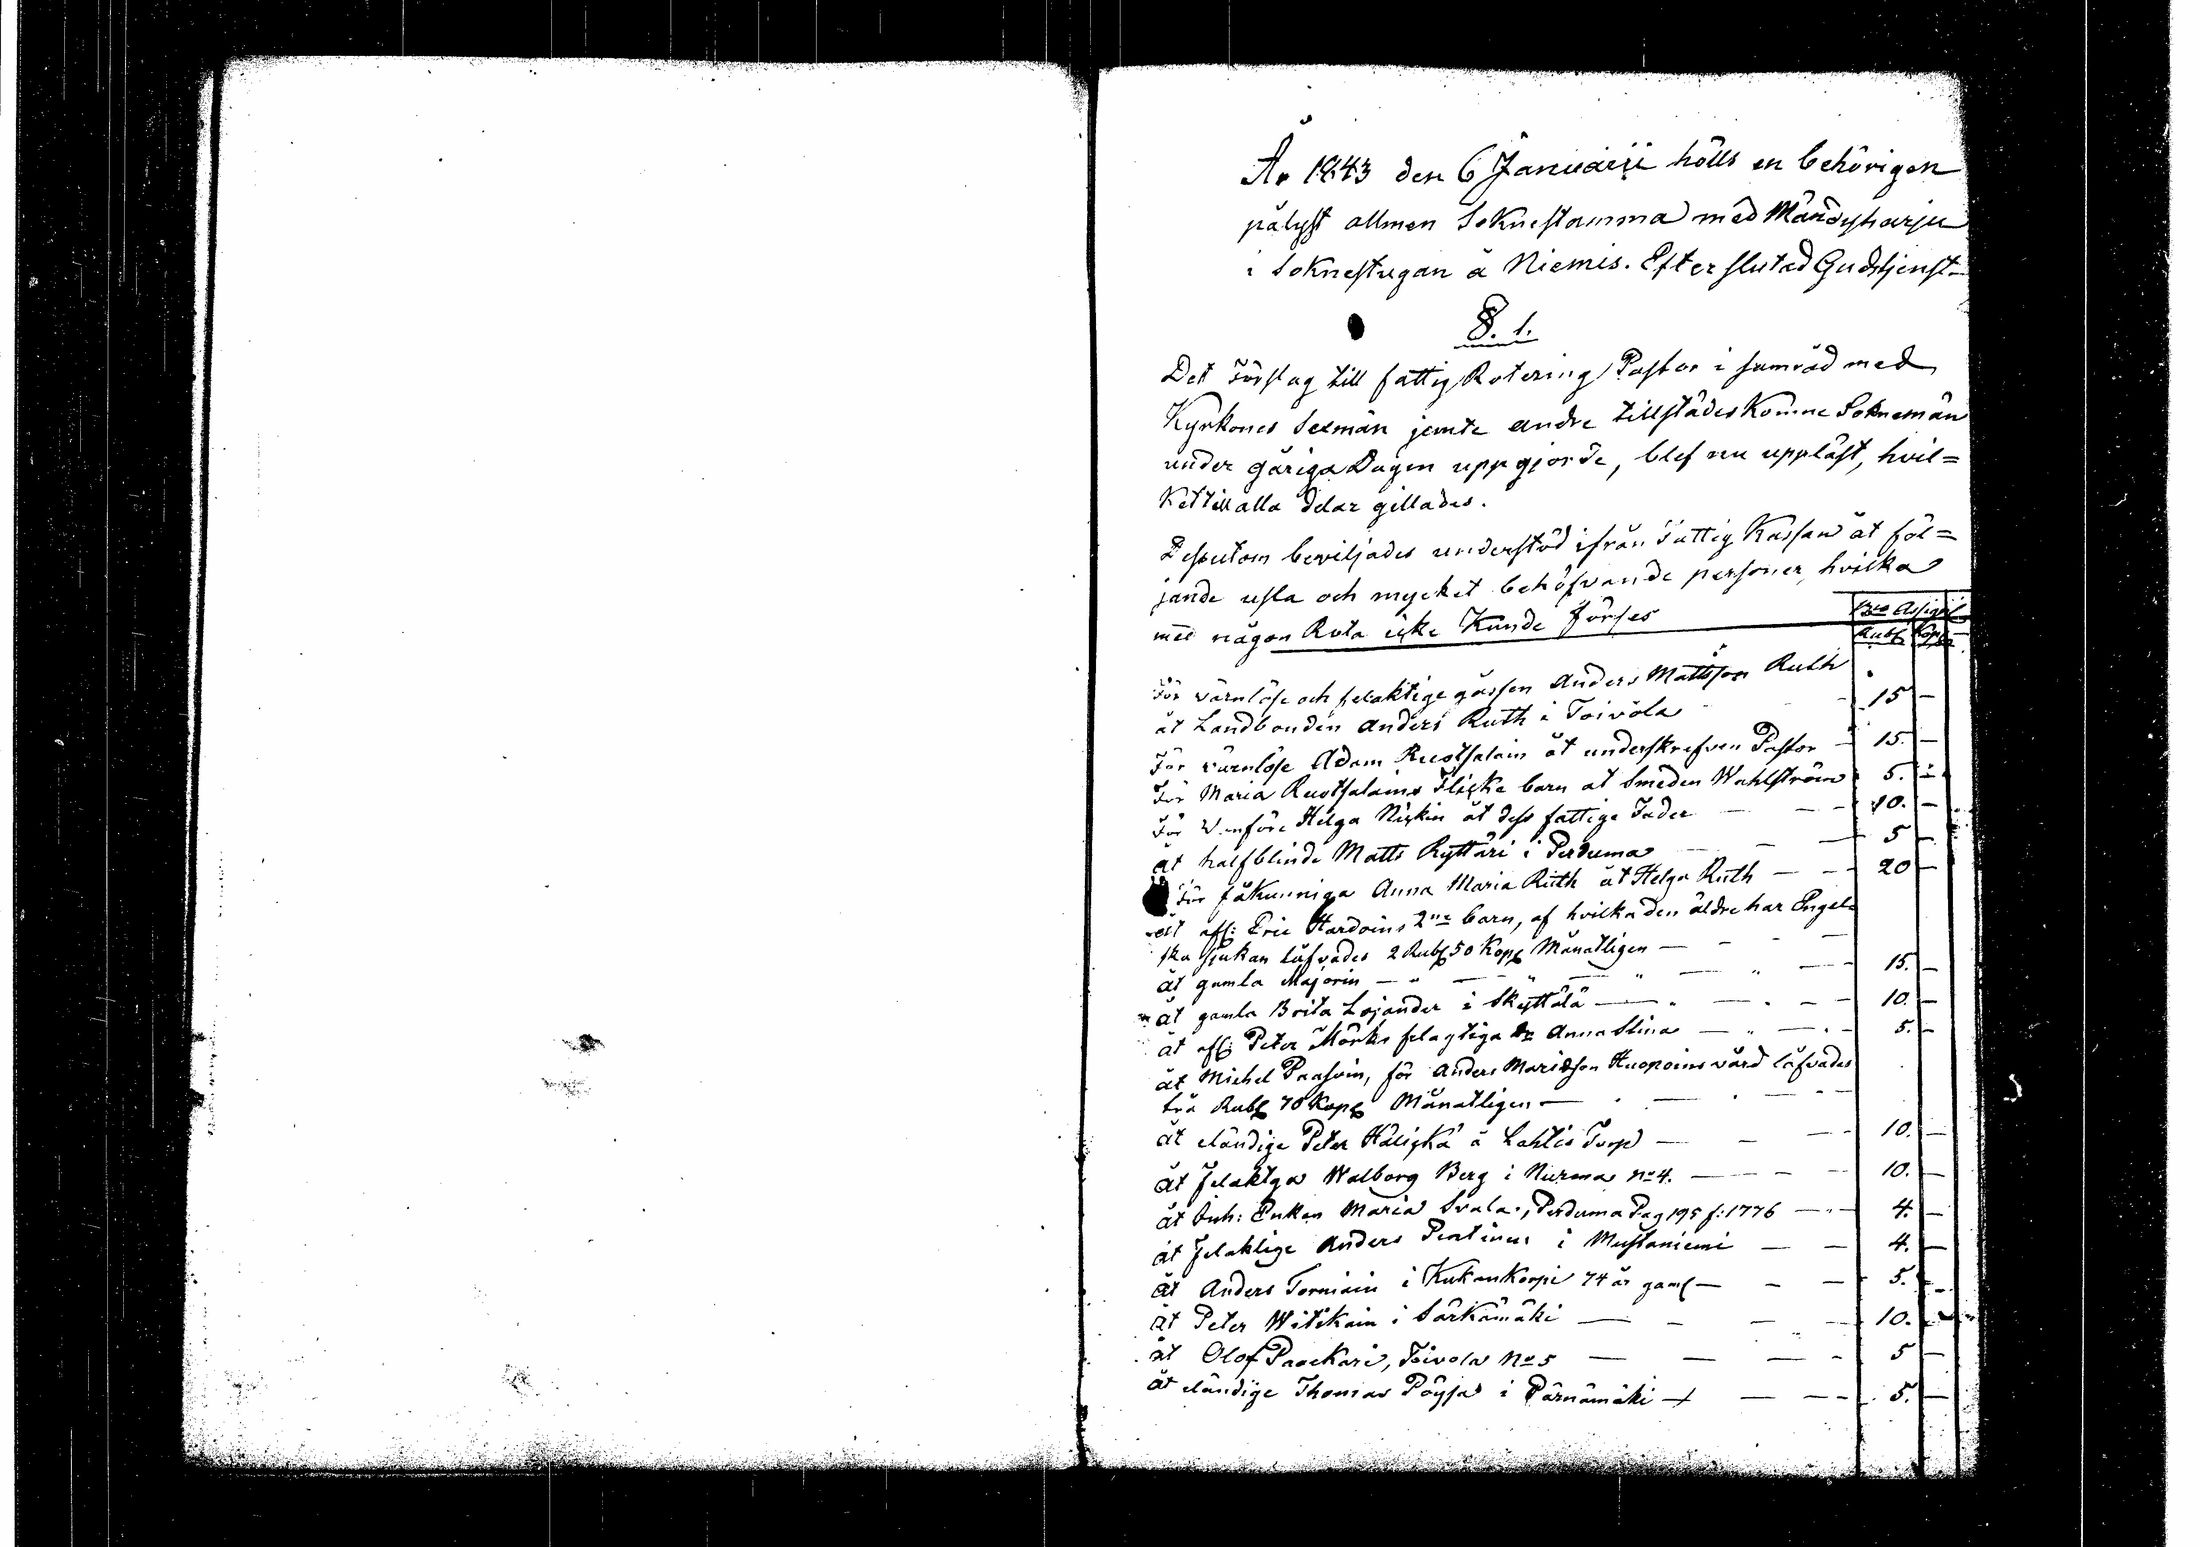 År 1843 den 6 Januarii hölls en behörigen
pålyst allmen Soknestamma med Mändyharju
i Soknestugan å Niemis. Efter slutad Gudstjenst
§. 1.
Det Förslag till fattig Rotering Pastor i samråd med
Kyrkones Sexmän jemte andre tillstädes Komne Soknemän
under gåriga Dagen uppgjorde, blef nu uppläst, hvil=
Ket till alla delar gillades.
Dessutom beviljades understöd ifrån Fattig Kassan åt föl=
jande usla och mycket behöfvande personer, hvilka
med någon Rota icke Kunde förses
Bco Assign
Rub Kop
För värnlöse och felaktige gåssen Anders Mattsson Ruth
åt Landbonden Anders Ruth i Toivola 15 —
För värnlöse Adam Ruotsalain åt underskrefven Pastor 15. —
För Maria Ruotsalains Flicke barn åt Smeden Wahlström 5. —
För Vanföre Helga Niskin åt dess fattige Fader — — — 10. —
åt halfblinde Matts Ryttäri i Perduma — — — 5 —
För fåkunniga Anna Maria Ruth åt Helga Ruth — — 20 —
åt afl: Eric Hardoins 2ne barn, af hvilka den äldre har Engel
ska sjukan låfvades 2 Rub 50 Kop Månatligen — — — —
åt gamla Majorin — — — — — 15. —
åt gamla Brita Lojander i Skyttälä — — — — 10. —
åt afl: Peter Mörks felagtiga Anna Stina — — — 5. —
åt Michel Paasvin, för Anders Maridson Huopoins vård låfvades
två Rub 70 Kop Månatligen — — — —
åt eländige Peter Häliskä å Lahtis Torp — — — 10. —
åt felaktga Walborg Berg i Nurma No 4. — — — 10. —
åt Inh: Enkan Maria Svala, Perduma Pag 195 f: 1776 — — 4. —
åt felaktige Anders Pentinus i Mustaniemi — — 4. —
åt Anders Torniain i Kukonkorpi 74 år gaml — — — 5. —
åt Peter Witikain i Särkämäki — — — — 10. —
åt Olof Paackari, Toivola No 5 — — — — 5 —
åt eländige Thomas Pöyja i Pärnämäki — — — — 5. —